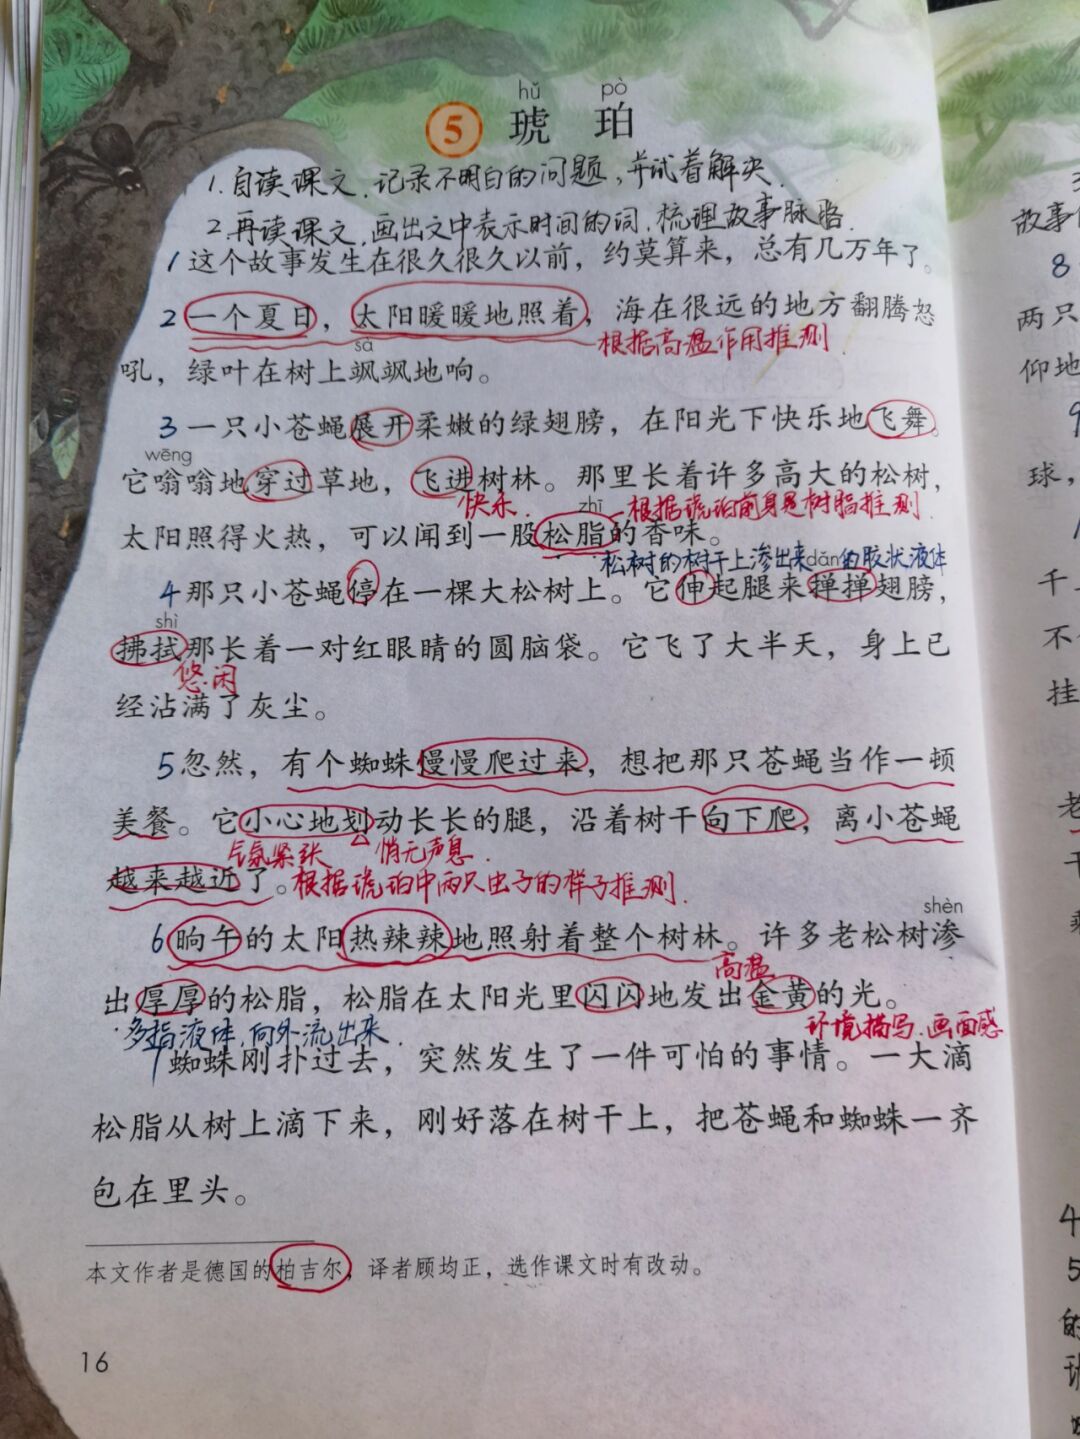 hǔ pò
5 琥珀
1.自读课文,记录不明白的问题,并试着解决.
2.再读课文,画出文中表示时间的词,梳理故事脉络.
1 这个故事发生在很久很久以前,约莫算来,总有几万年了。
2 一个夏日,太阳暖暖地照着,海在很远的地方翻腾怒
根据高温作用推测.
sà
吼,绿叶在树上飒飒地响。
3 一只小苍蝇展开柔嫩的绿翅膀,在阳光下快乐地飞舞。
wēng
它嗡嗡地穿过草地,飞进树林。那里长着许多高大的松树,
快乐. zhī 根据琥珀前身是树脂推测.
太阳照得火热,可以闻到一股松脂的香味。
松树的树干上渗出来的胶状液体
dǎn
4 那只小苍蝇停在一棵大松树上。它伸起腿来掸掸翅膀,
shì
拂拭那长着一对红眼睛的圆脑袋。它飞了大半天,身上已
悠闲
经沾满了灰尘。
5 忽然,有个蜘蛛慢慢爬过来,想把那只苍蝇当作一顿
美餐。它小心地划动长长的腿,沿着树干向下爬,离小苍蝇
气氛紧张 悄无声息.
越来越近了。根据琥珀中两只虫子的样子推测.
shèn
6 晌午的太阳热辣辣地照射着整个树林。许多老松树渗
高温
出厚厚的松脂,松脂在太阳光里闪闪地发出金黄的光。
多指液体,向外流出来. 环境描写.画面感
7 蜘蛛刚扑过去,突然发生了一件可怕的事情。一大滴
松脂从树上滴下来,刚好落在树干上,把苍蝇和蜘蛛一齐
包在里头。
本文作者是德国的柏吉尔,译者顾均正,选作课文时有改动。
16
故事
8
两只
仰地
球,
千
不
挂
老
干
4
5
的